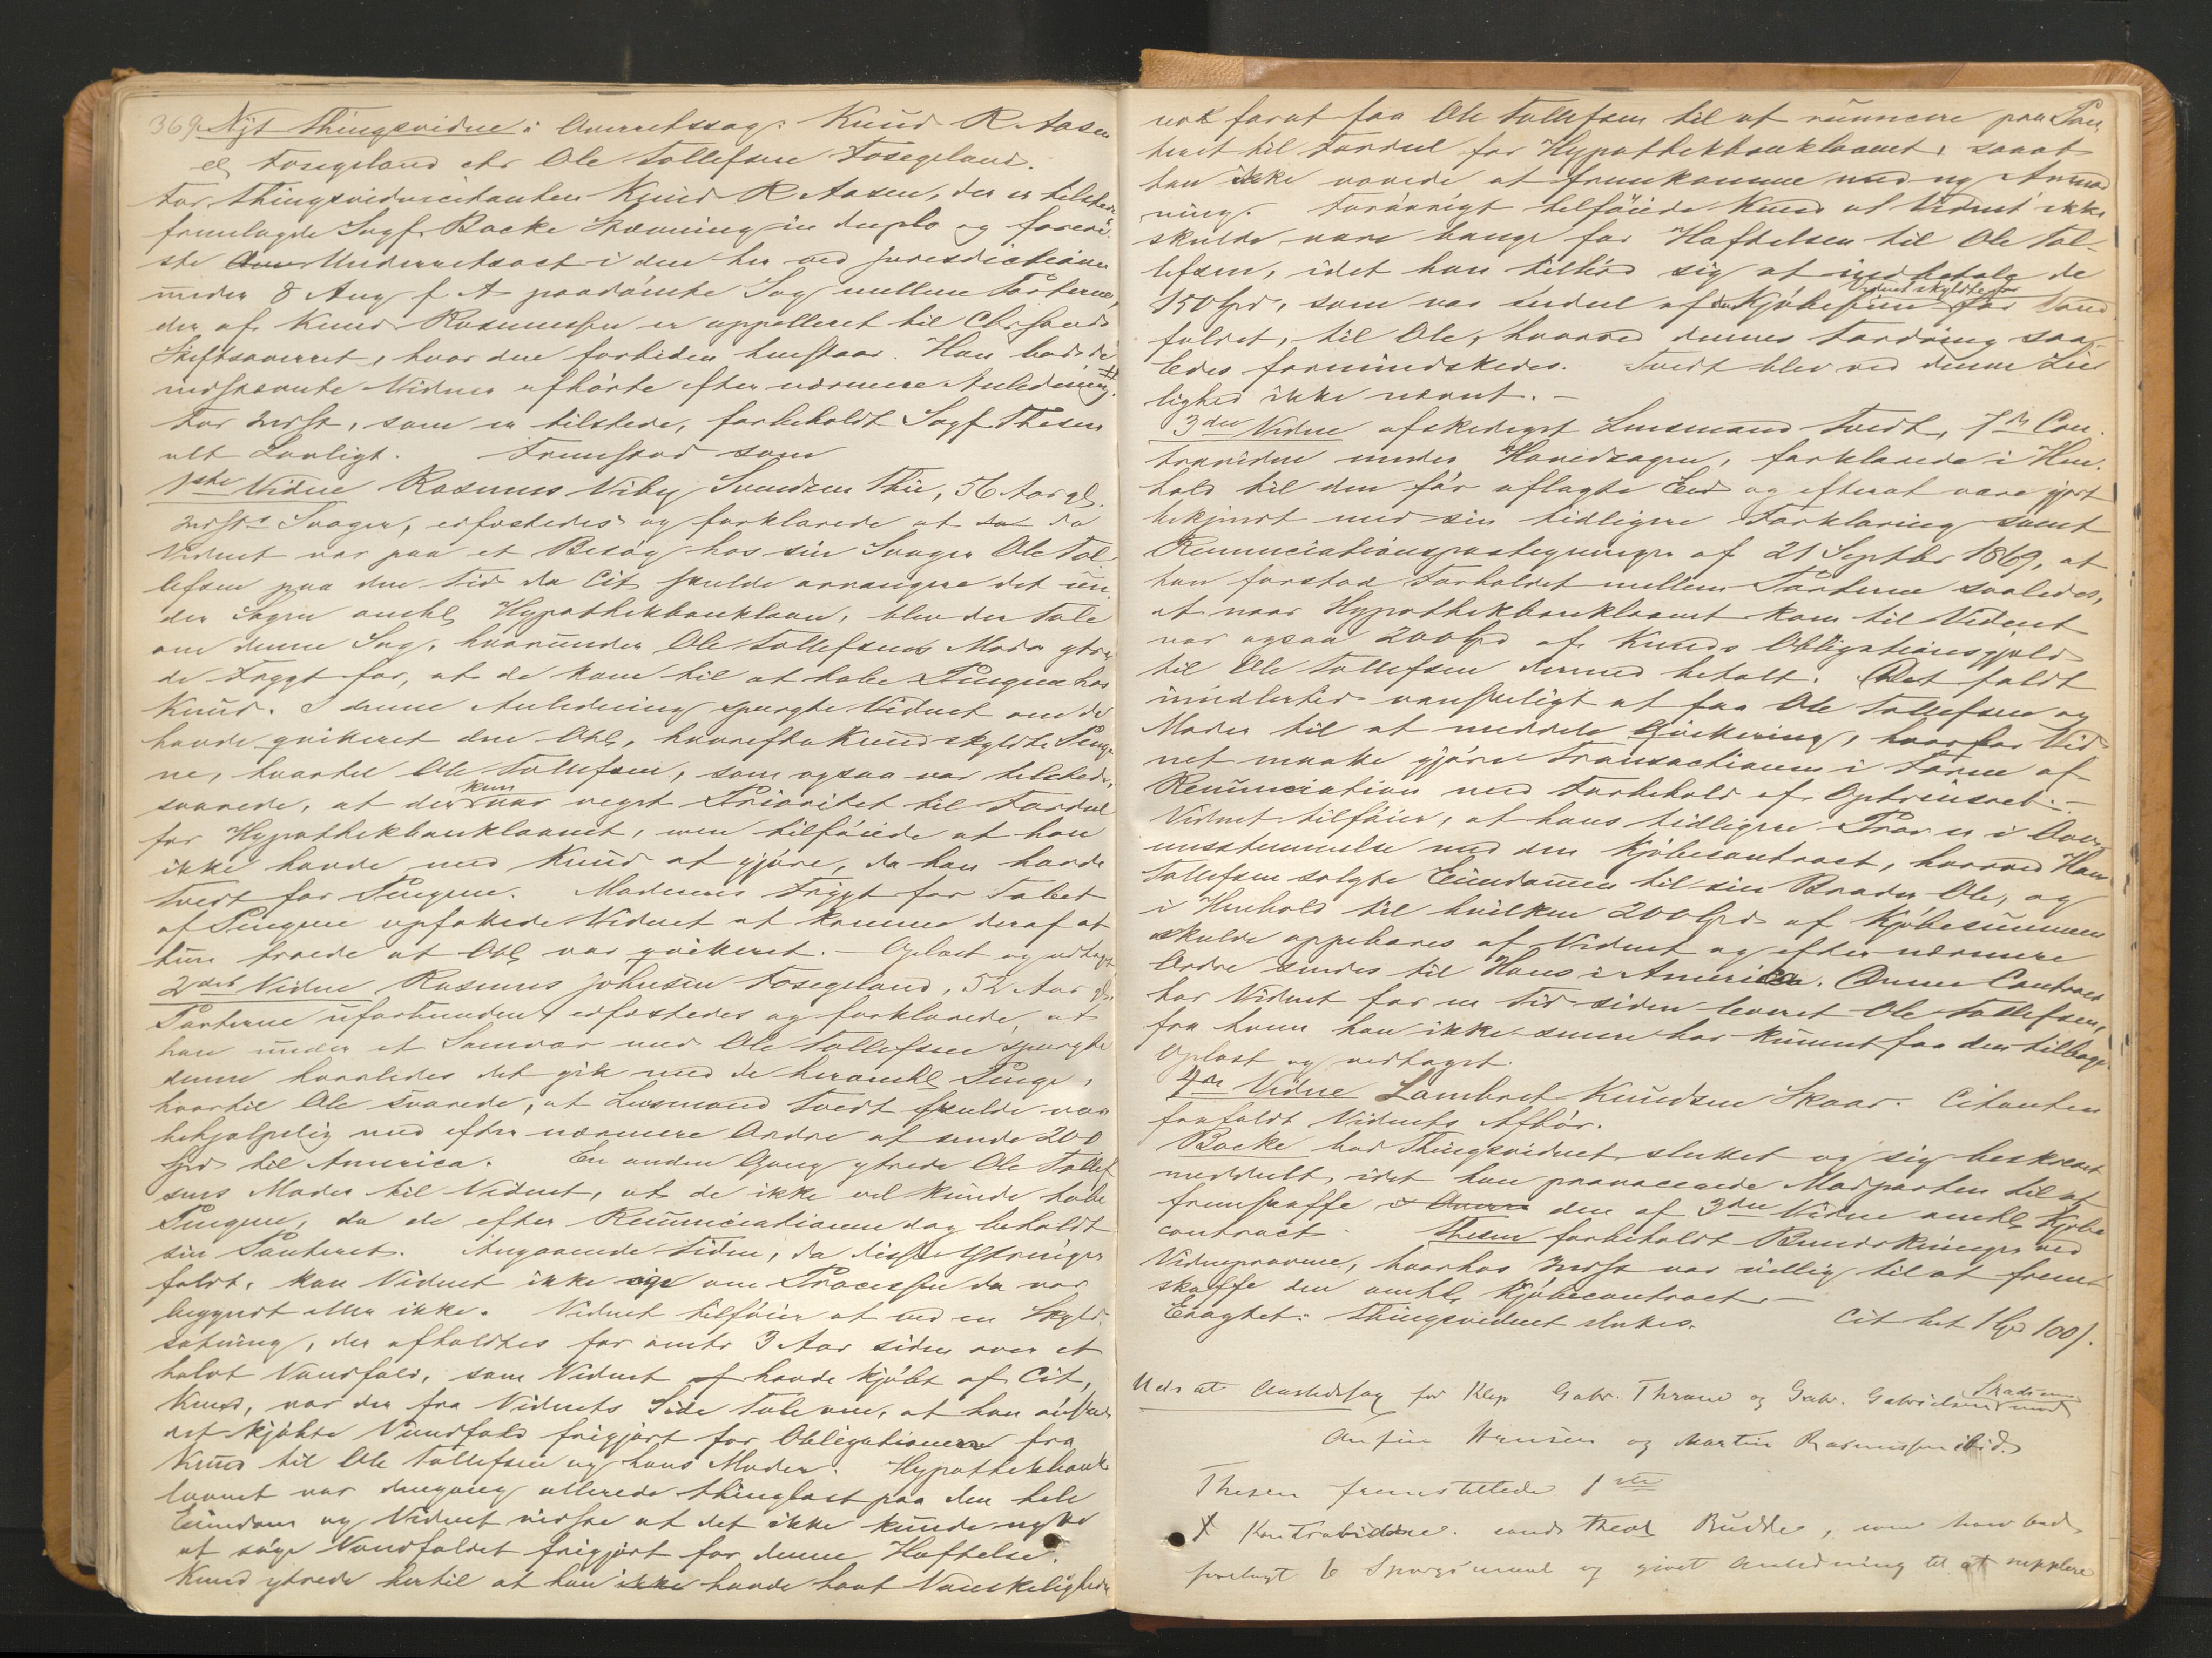 369. Nyt Thingsvidne i Overretssag: Knud R Aasen
el Fosegeland ctr Ole Tollefsen Fosegeland.
For Thingsvidnecitanten Knud R Aasen, der er tilstede
fremlagde Sagf. Backe Stævning in duplo og foreviste
Underretsact i den her ved Jurisdictionen
under 8 Aug f A paadömte Sag mellem Parterne,
der af Knud Rasmussen er appelleret til Chrsands
Stiftsoverret, hvor den fortiden henstaar. Han bad de
indstævnte Vidner afhörte efter nærmere Anledning.
For Indst, som er tilstede, forbeholdt Sagf Thesen
alt Lovligt. Fremstod som
1ste Vidne Rasmus Viby Svendsen Thu, 56 Aar gl.
Indsts Svoger, edfæstedes og forklarede at da
Vidnet var paa et Besög hos sin Svoger Ole Tol
lefsen paa den Tid da Cit skulde arrangere det un
der Sagen omhl Hypothekbanklaan, blev der Tale
om denne Sag, hvorunder Ole Tollefsens Moder ytre
de Frygt for, at de kom til at tabe Pengene hos
Knud. I denne Anledning spurgte Vidnet om de
havde qvitteret den Obl, hvorefter Knud skyldte Penge
ne, hvortil Ole Tollefsen, som ogsaa var tilstede,
svarede, at der kun var veget Prioritet til Fordel
for Hypothekbanklaanet, men tilföiede at han
ikke havde med Knud at gjöre, da han havde
Tvedt for Pengene. Moderens Frygt for Tabet
af Pengene opfattede Vidnet at komme deraf at
hun troede at Obl var qvitteret. – Oplæst og vedtaget
2det Vidne Rasmus Johnsen Fosegeland, 52 Aar gl.
Parterne uforbunden, edfæstedes og forklarede, at
han under et Samvær med Ole Tollefsen spurgte
denne hvorledes det gik med de heromhl Penge,
hvortil Ole svarede, at Lensmand Tvedt skulde være
behjælpelig med efter nærmere Ordre at sende 200
Spd til America. En anden Gang ytrede Ole Tollef
sens Moder til Vidnet, at de ikke vel kunde tabe
Pengene, da de efter Renunciationen dog beholdt
sin Panteret. Angaaende Tiden, da disse Ytringer
faldt, kan Vidnet ikke sige om Processen da var
begyndt eller ikke. Vidnet tilföier at ved en Skyld
sætning, der afholdtes for omtr 3 Aar siden over et
halvt Vandfald, som Vidnet havde kjöbt af Cit,
Knud, var der fra Vidnets Side Tale om, at han önskede
det kjöbte Vandfald frigjort for Obligationerne fra
Knud til Ole Tollefsen og hans Moder. Hypothekbank
laanet var dengang allerede thinglæst paa den hele
Eiendom og Vidnet vidste at det ikke kunde nytte
at söge Vandfaldet frigjort for denne Hæftelse.
Knud ytrede hertil at han ikke havde havt Vanskeligheder
nok forat faa Ole Tollefsen til at renuncere paa Pan
teret til Fordel for Hypothekbanklaanet, saaat
han ikke vovede at fremkomme med ny Anmod
ning. Foravrigt tilföiede Knud at Vidnet ikke
skulde være bange for Hæftelsen til Ole Tol
lefsen, idet han tilböd sig at indbetale de
150 Spd, som var endel af den Kjöbesum Vidnet skyldte for Vand
faldet, til Ole, hvorved dennes Fordring saa
ledes formindskedes. Tvedt blev ved denne Lei
lighed ikke nævnt. –
3die Vidne afskediget Lensmand Tvedt, 7de Con
travidne under Hovedsagen, forklarede i Hen
hold til den för aflagte Eed og efterat være gjort
bekjendt med sin tidligere Forklaring samt
Renunciationspaategningen af 21 Septbr 1869, at
han forstod Forholdet mellem Parterne saaledes,
at naar Hypothekbanklaanet kom til Vidnet
var ogsaa 200 Spd af Knuds Obligationsgjæld
til Ole Tollefsen dermed betalt. Det faldt
imidlertid vanskeligt at faa Ole Tollefsen og
Moder til at meddele Qvittering, hvorfor Vid
net maatte gjöre Transactionen i Form af
Renunciation med Forbehold af Optrinsret. –
Vidnet tilföier, at hans tidligere Prov er i Over
ensstemmelse med den Kjöbecontract, hvorved Hans
Tollefsen solgte Eiendommen til sin Broder Ole, og
i Henhold til hvilken 200 Spd af Kjöbesummen
skulde oppebæres af Vidnet og efter nærmere
Ordre sendes til Hans i America. Denne Contract
har Vidnet for en Tid siden leveret Ole Tollefsen,
fra hvem han ikke senere har kunnet faa den tilbage.
Oplæst og vedtaget.
4de Vidne Lambert Knudsen Skaar. Citanten
frafaldt Vidnets Afhör.
Backe bad Thingsvidnet sluttet og sig beskrevet
meddelt, idet han provocerede Modparten til at
fremskaffe den af 3die Vidne omhl Kjöbe
contract. Thesen forbeholdt Bemærkninger ved
Vidneprovene, hvorhos Indst var villig til at frem
skaffe den omhl Kjöbecontract. –
Eragtet: Thingsvidnet sluttes. Cit bet 1 Spd 100 s.
Uds at Aastedssag for Klep Gabr. Thrane og Gabr. Gabrielsen Skadsem mod
Anfin Hansen og Martin Rasmussen ibid.
Thesen fremstillede 1ste
X Kontravidne. cand theol Budde, som han bad
forelagt 6 Spörgsmaal og givet Anledning til at supplere